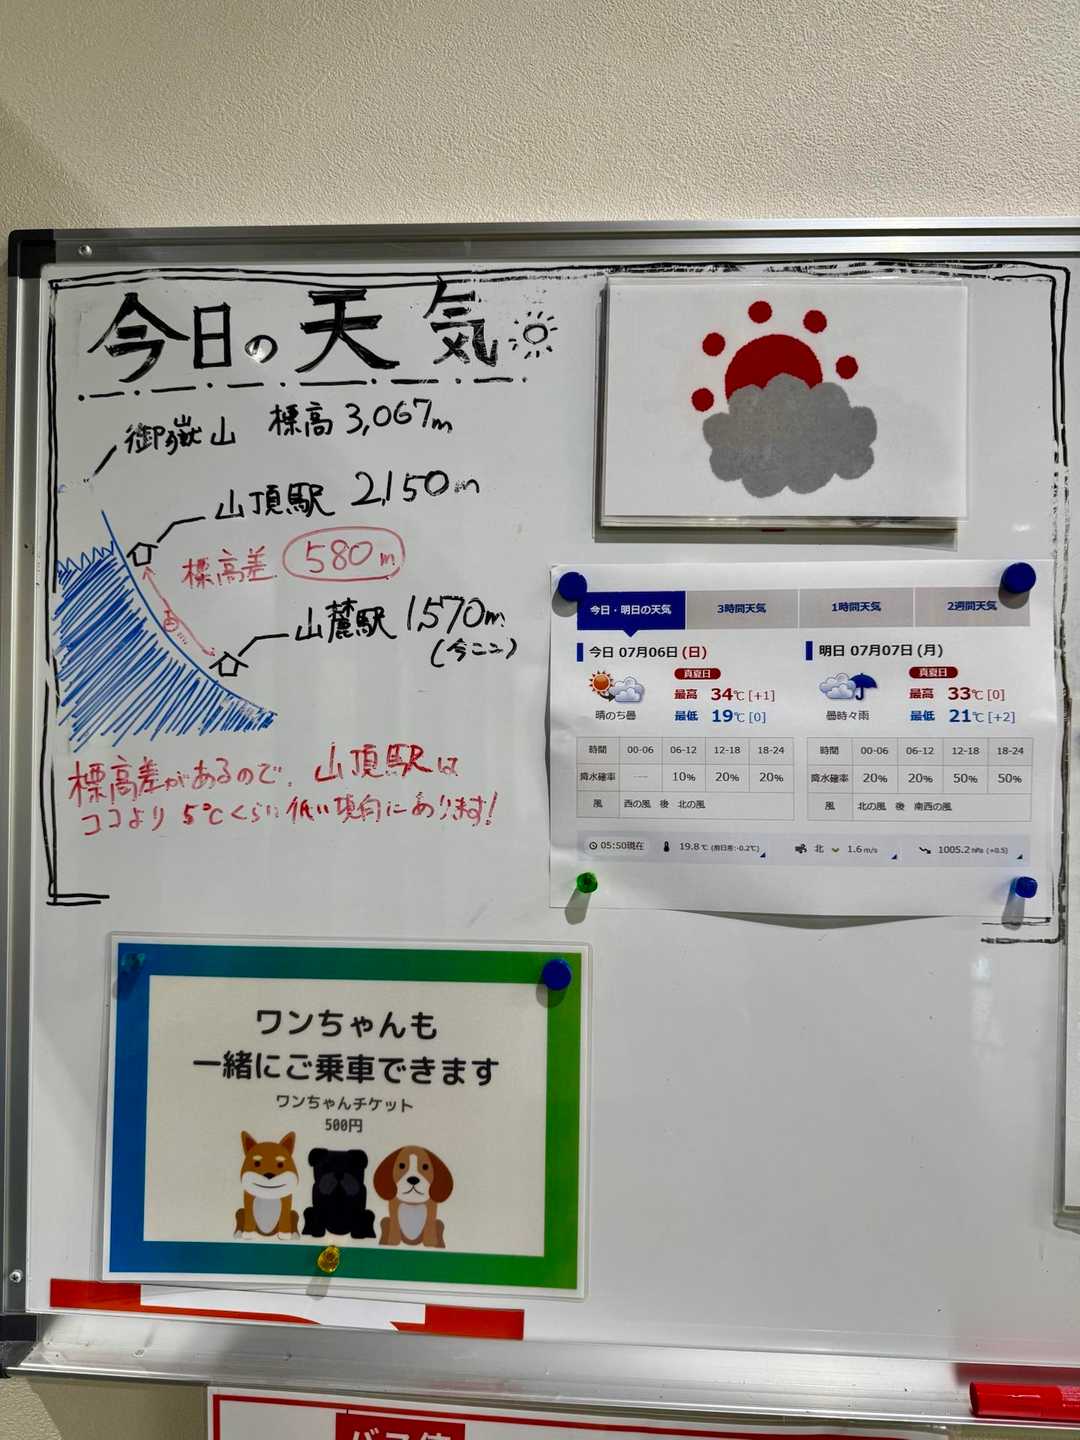 今日の天気
御嶽山 標高 3,067m
山頂駅 2,150m
標高差 580m
山麓駅 1,570m
(今ココ)
標高差があるので、山頂駅は
ココより 5℃くらい低い傾向にあります!
今日・明日の天気 3時間天気 1時間天気 2週間天気
今日 07月06日(日)
真夏日
晴のち曇
最高 34℃[+1]
最低 19℃[0]
時間 00-06 06-12 12-18 18-24
降水確率 --- 10% 20% 20%
風 西の風 後 北の風
明日 07月07日(月)
真夏日
曇時々雨
最高 33℃[0]
最低 21℃[+2]
時間 00-06 06-12 12-18 18-24
降水確率 20% 20% 50% 50%
風 北の風 後 南西の風
05:50現在 19.8℃(前日差:-0.2℃) 北 1.6m/s 1005.2hPa(+0.5)
ワンちゃんも
一緒にご乗車できます
ワンちゃんチケット
500円